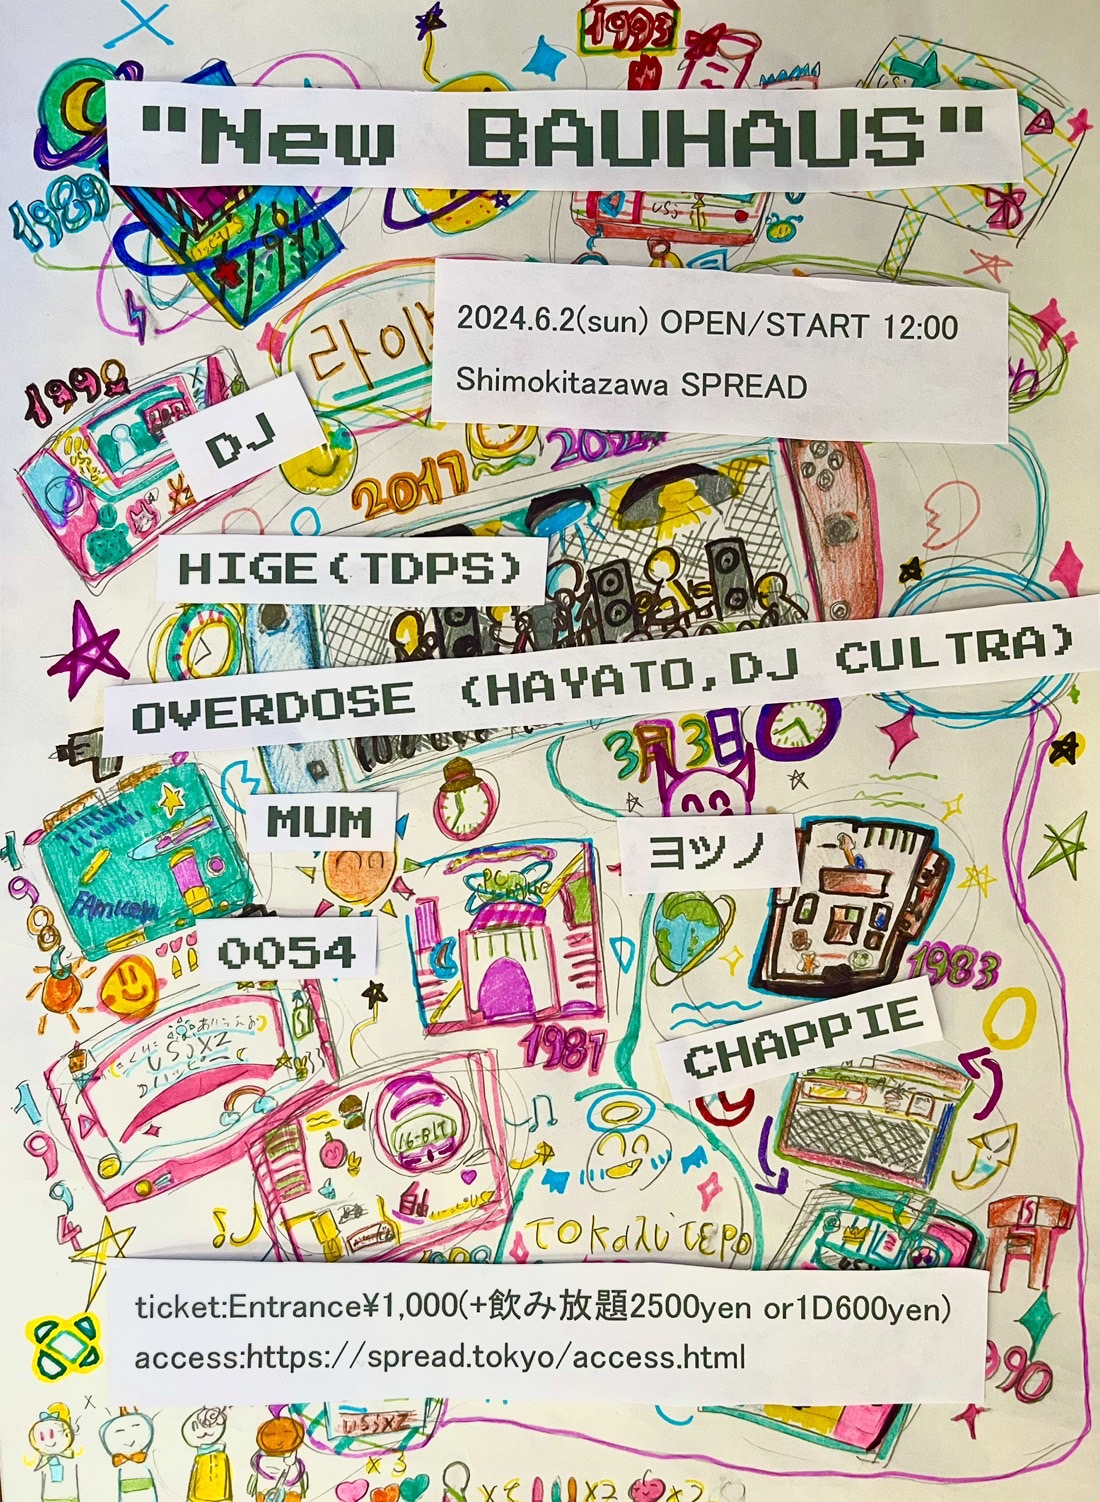 1993
"New BAUHAUS"
1989
2024.6.2(sun) OPEN/START 12:00
Shimokitazawa SPREAD
라이
1998
DJ
2017
HIGE(TDPS)
OVERDOSE (HAYATO,DJ CULTRA)
3月3日
MUM
ヨツノ
PC
FAMicom
0054
1983
CHAPPIE
1987
USJXZ
16-BIT
1994
τοκαλύτερο
ticket:Entrance¥1,000(+飲み放題2500yen or1D600yen)
access:https://spread.tokyo/access.html
990
USJXZ
x3
x2
x2